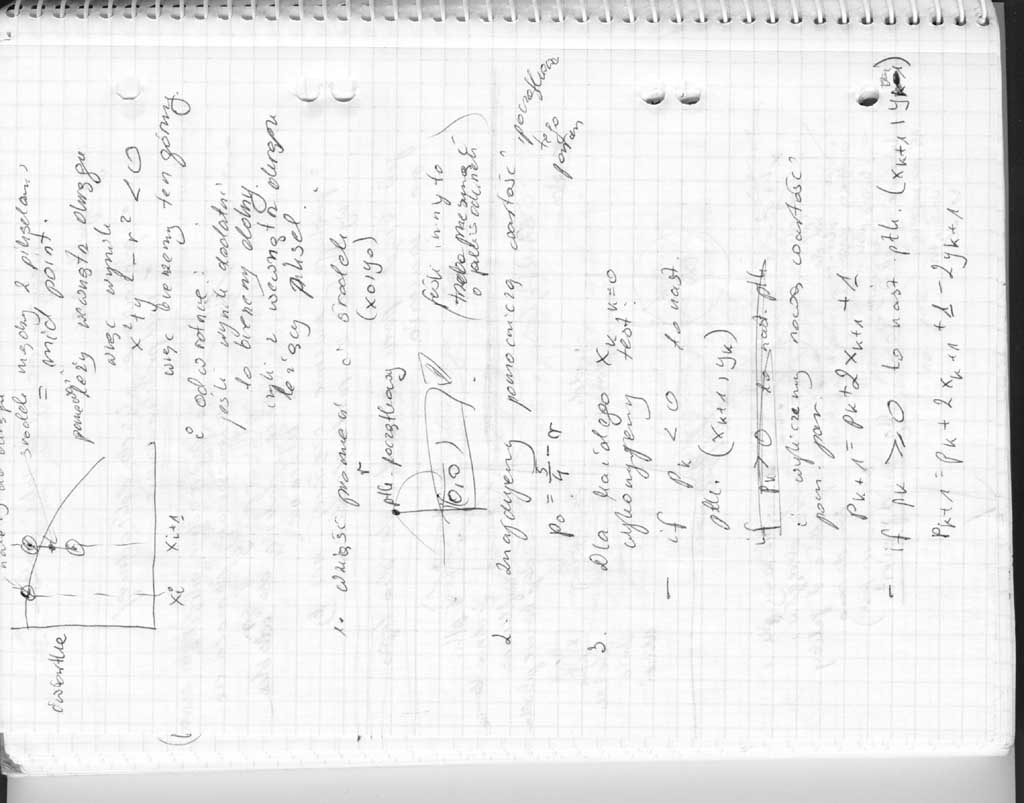 środek między 2 pikselami
= mid point.
ponieważ leży wewnątrz okręgu
więc wynik
x²+y²-r² < 0
więc bierzemy ten górny.
i odwrotnie:
jeśli wynik dodatni
to bierzemy dolny.
czyli z wewnątrz okręgu
leżący piksel.
ćwiartka
xi xi+1
1. wziąść promień r i środek
(x0, y0)
pkt początkowy
(0,0)
jeśli inny to
trzeba pamiętać
o
2. znajdujemy pomocniczą wartość
początkowa
tego
param
p0 = 5/4 - r
3. Dla każdego xk k=0
wykonujemy test:
- if pk < 0 to nast.
pkt. (xk+1, yk)
if pk > 0 to nast. pkt
i wyliczamy nową wartość
pom par.
pk+1 = pk+2xk+1 + 1
- if pk ≥ 0 to nast pkt. (xk+1, yk-1)
pk+1 = pk + 2xk+1 + 1 - 2yk+1